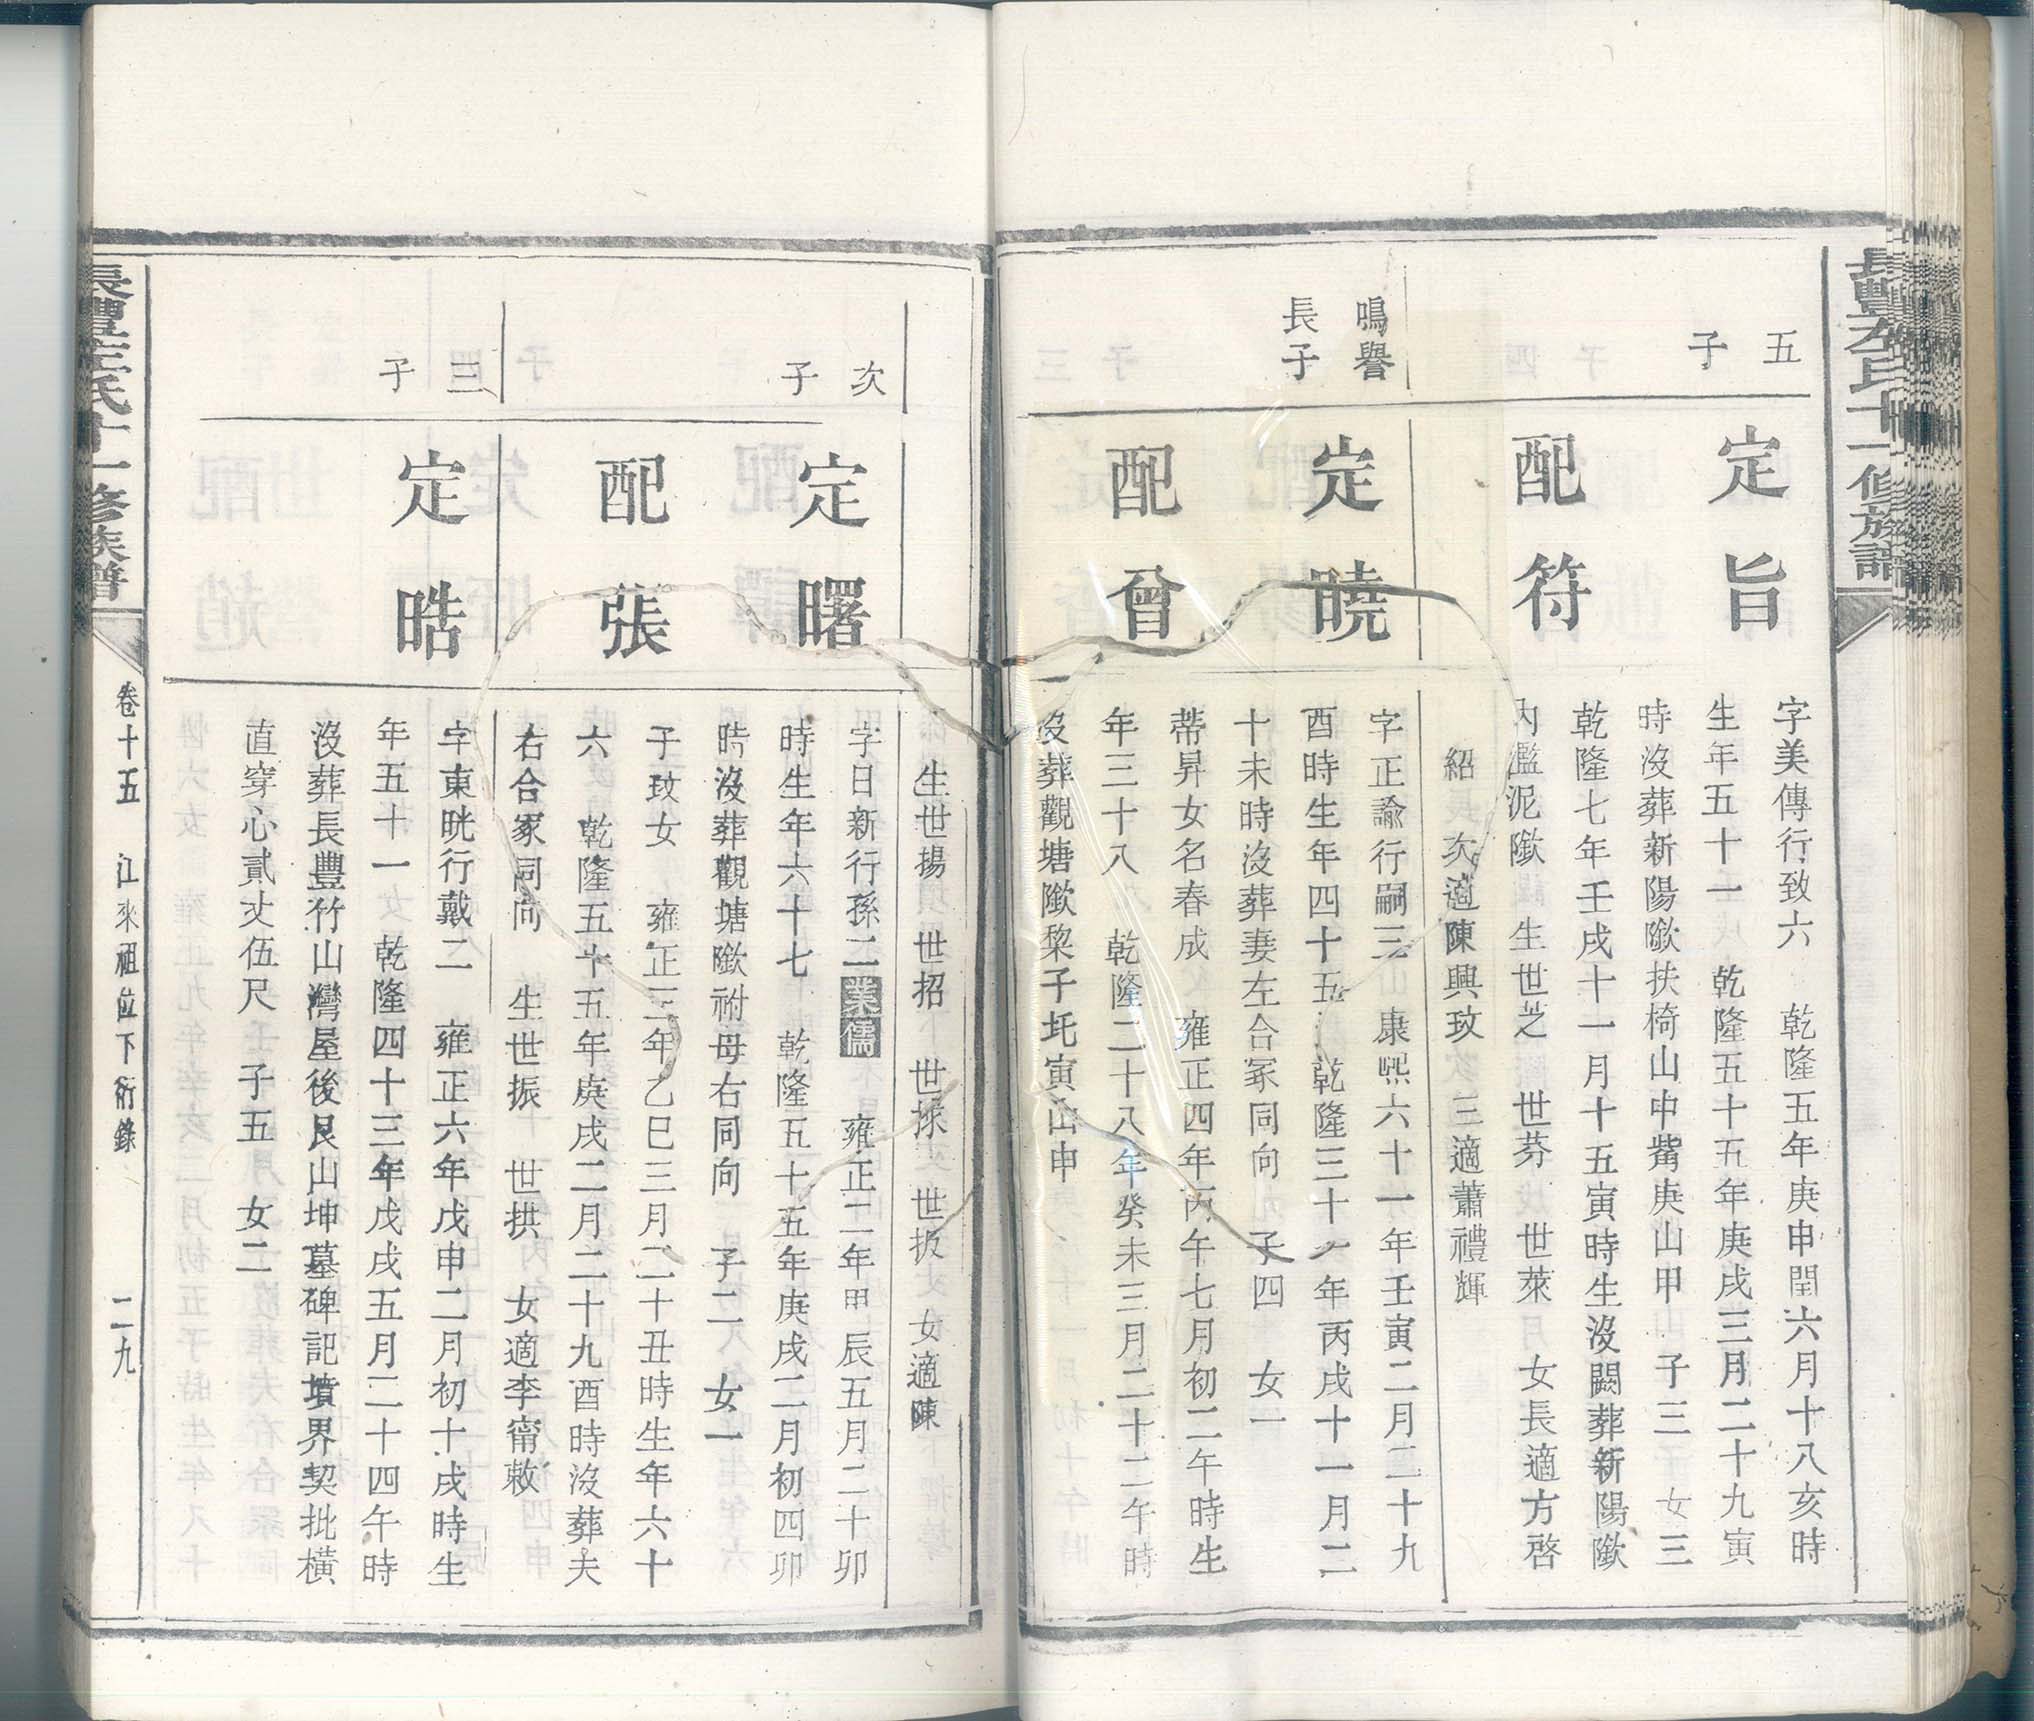 長豐左氏十一修族譜
五
子
定旨
字美傳行致六 乾隆五年庚申閏六月十八亥時
生年五十一 乾隆五十五年庚戌三月二十九寅
時沒葬新陽㘭扶椅山中觜庚山甲 子三 女三
配符
乾隆七年壬戌十一月十五寅時生沒闕葬新陽㘭
內濫泥㘭 生世芝 世芬 世萊 女長適方啓
紹 次適陳興玫 三適蕭禮輝
鳴譽
長子
定曉
字正諭行嗣三 康熙六十一年壬寅二月二十九
酉時生年四十五 乾隆三十一年丙戌十一月二
十未時沒葬妻左合冢同向 子四 女一
配曾
蒂昇女名春成 雍正四年丙午七月初二午時生
年三十八 乾隆二十八年癸未三月二十二午時
沒葬觀塘㘭黎子坵寅山申
生世揚 世招 世採 世扳 女適陳
次
子
定曙
字日新行孫二業儒 雍正二年甲辰五月二十卯
時生年六十七 乾隆五十五年庚戌二月初四卯
時沒葬觀塘㘭祔母右同向 子二 女一
配張
子玟女 雍正三年乙巳三月二十丑時生年六十
六 乾隆五十五年庚戌二月二十九酉時沒葬夫
右合冢同向 生世振 世拱 女適李甯敕
三
子
定晧
字東晄行戴二 雍正六年戊申二月初十戌時生
年五十一 乾隆四十三年戊戌五月二十四午時
沒葬長豐竹山灣屋後艮山坤墓碑記墳界契批橫
直穿心貳丈伍尺 子五 女二
長豐左氏十一修族譜
卷十五 江來祖位下衍錄 二九